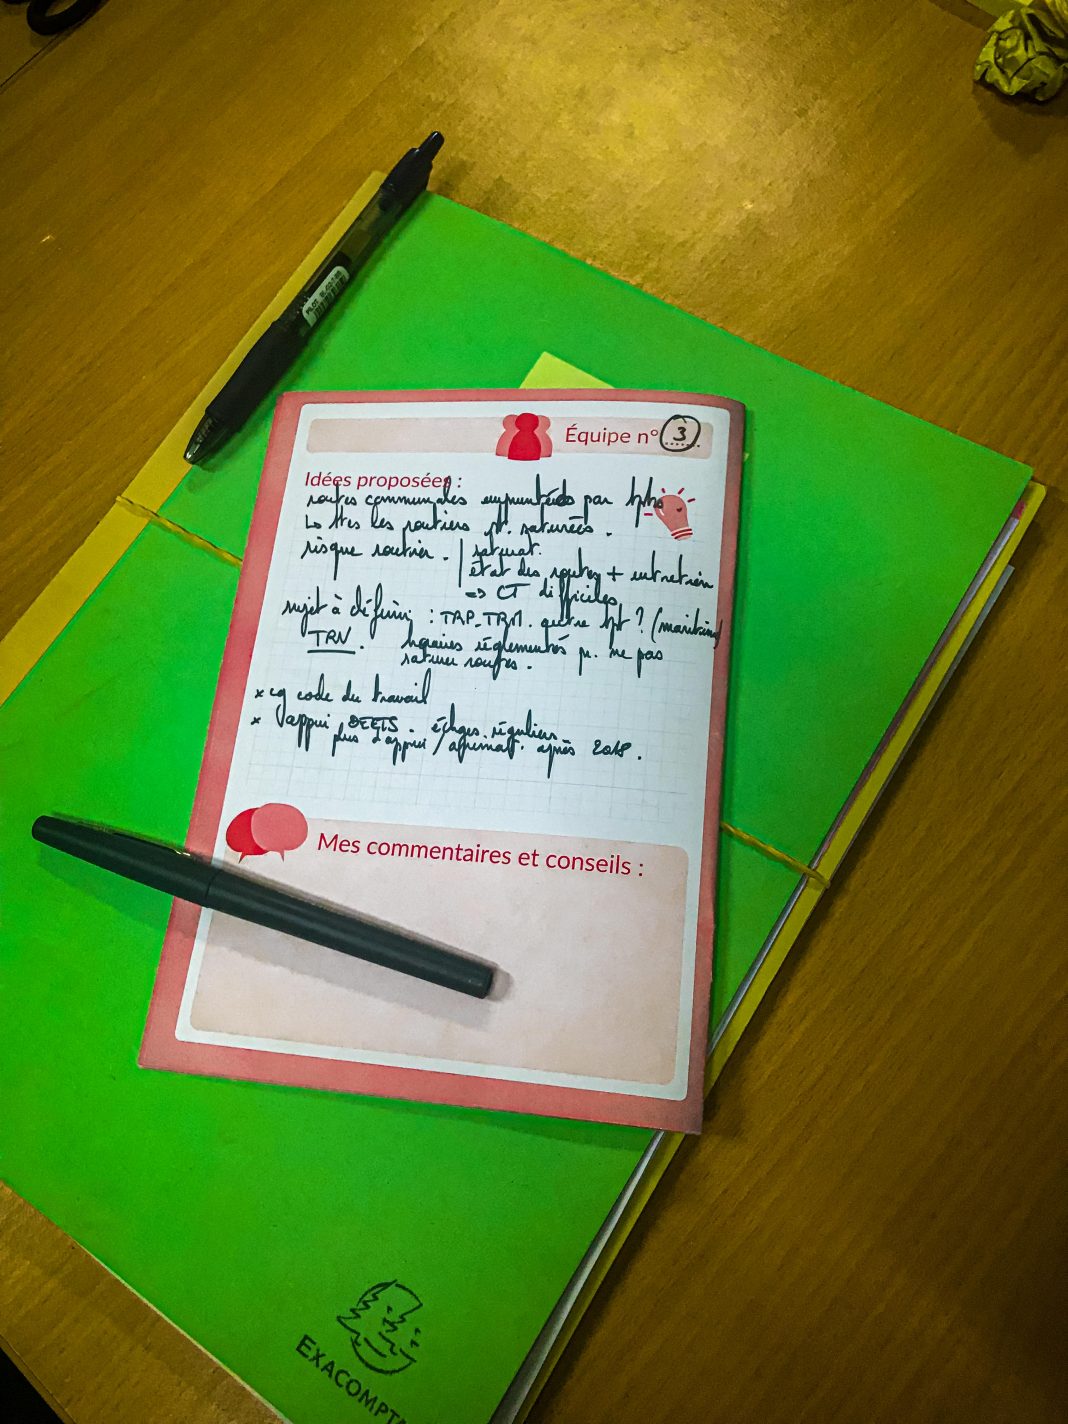 Équipe n° 3
Idées proposées :
routes communales empruntées par
Ls ttes les routiers st. saturées.
risque routier. saturat.
état des routes + entretien
=> CT difficiles
sujet à définir : TRP-TRM. autre tpt ? (maritime)
TRV. horaires réglementés pr. ne pas
saturer routes.
x cg code du travail
x l'appui DEETS. échges. réguliers
plus d'appui / après 2018.
Mes commentaires et conseils :
EXACOMPTA